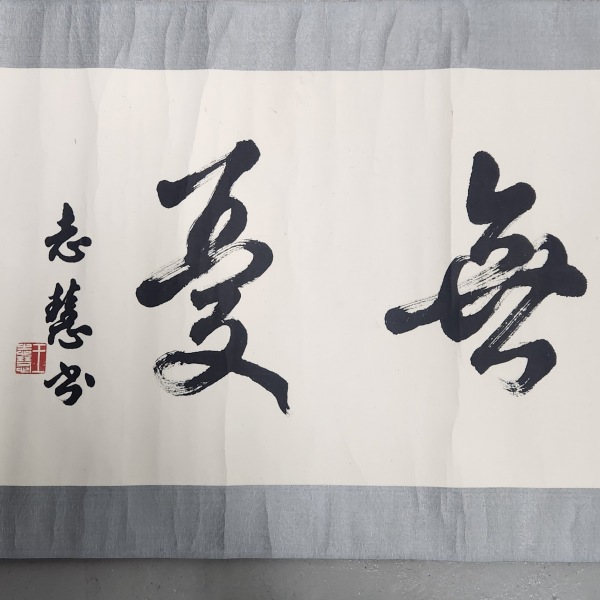 無憂
志慧书